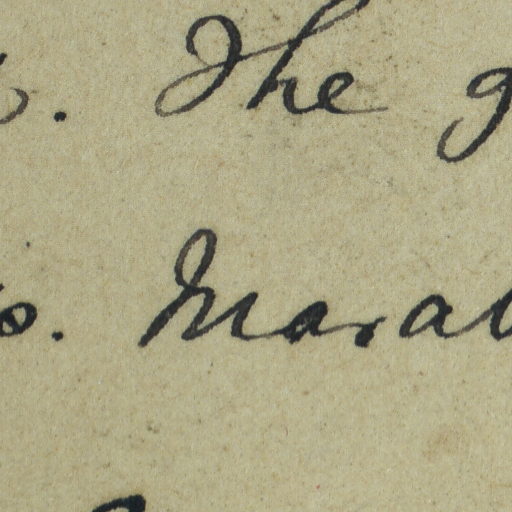 . The g
s. Mara